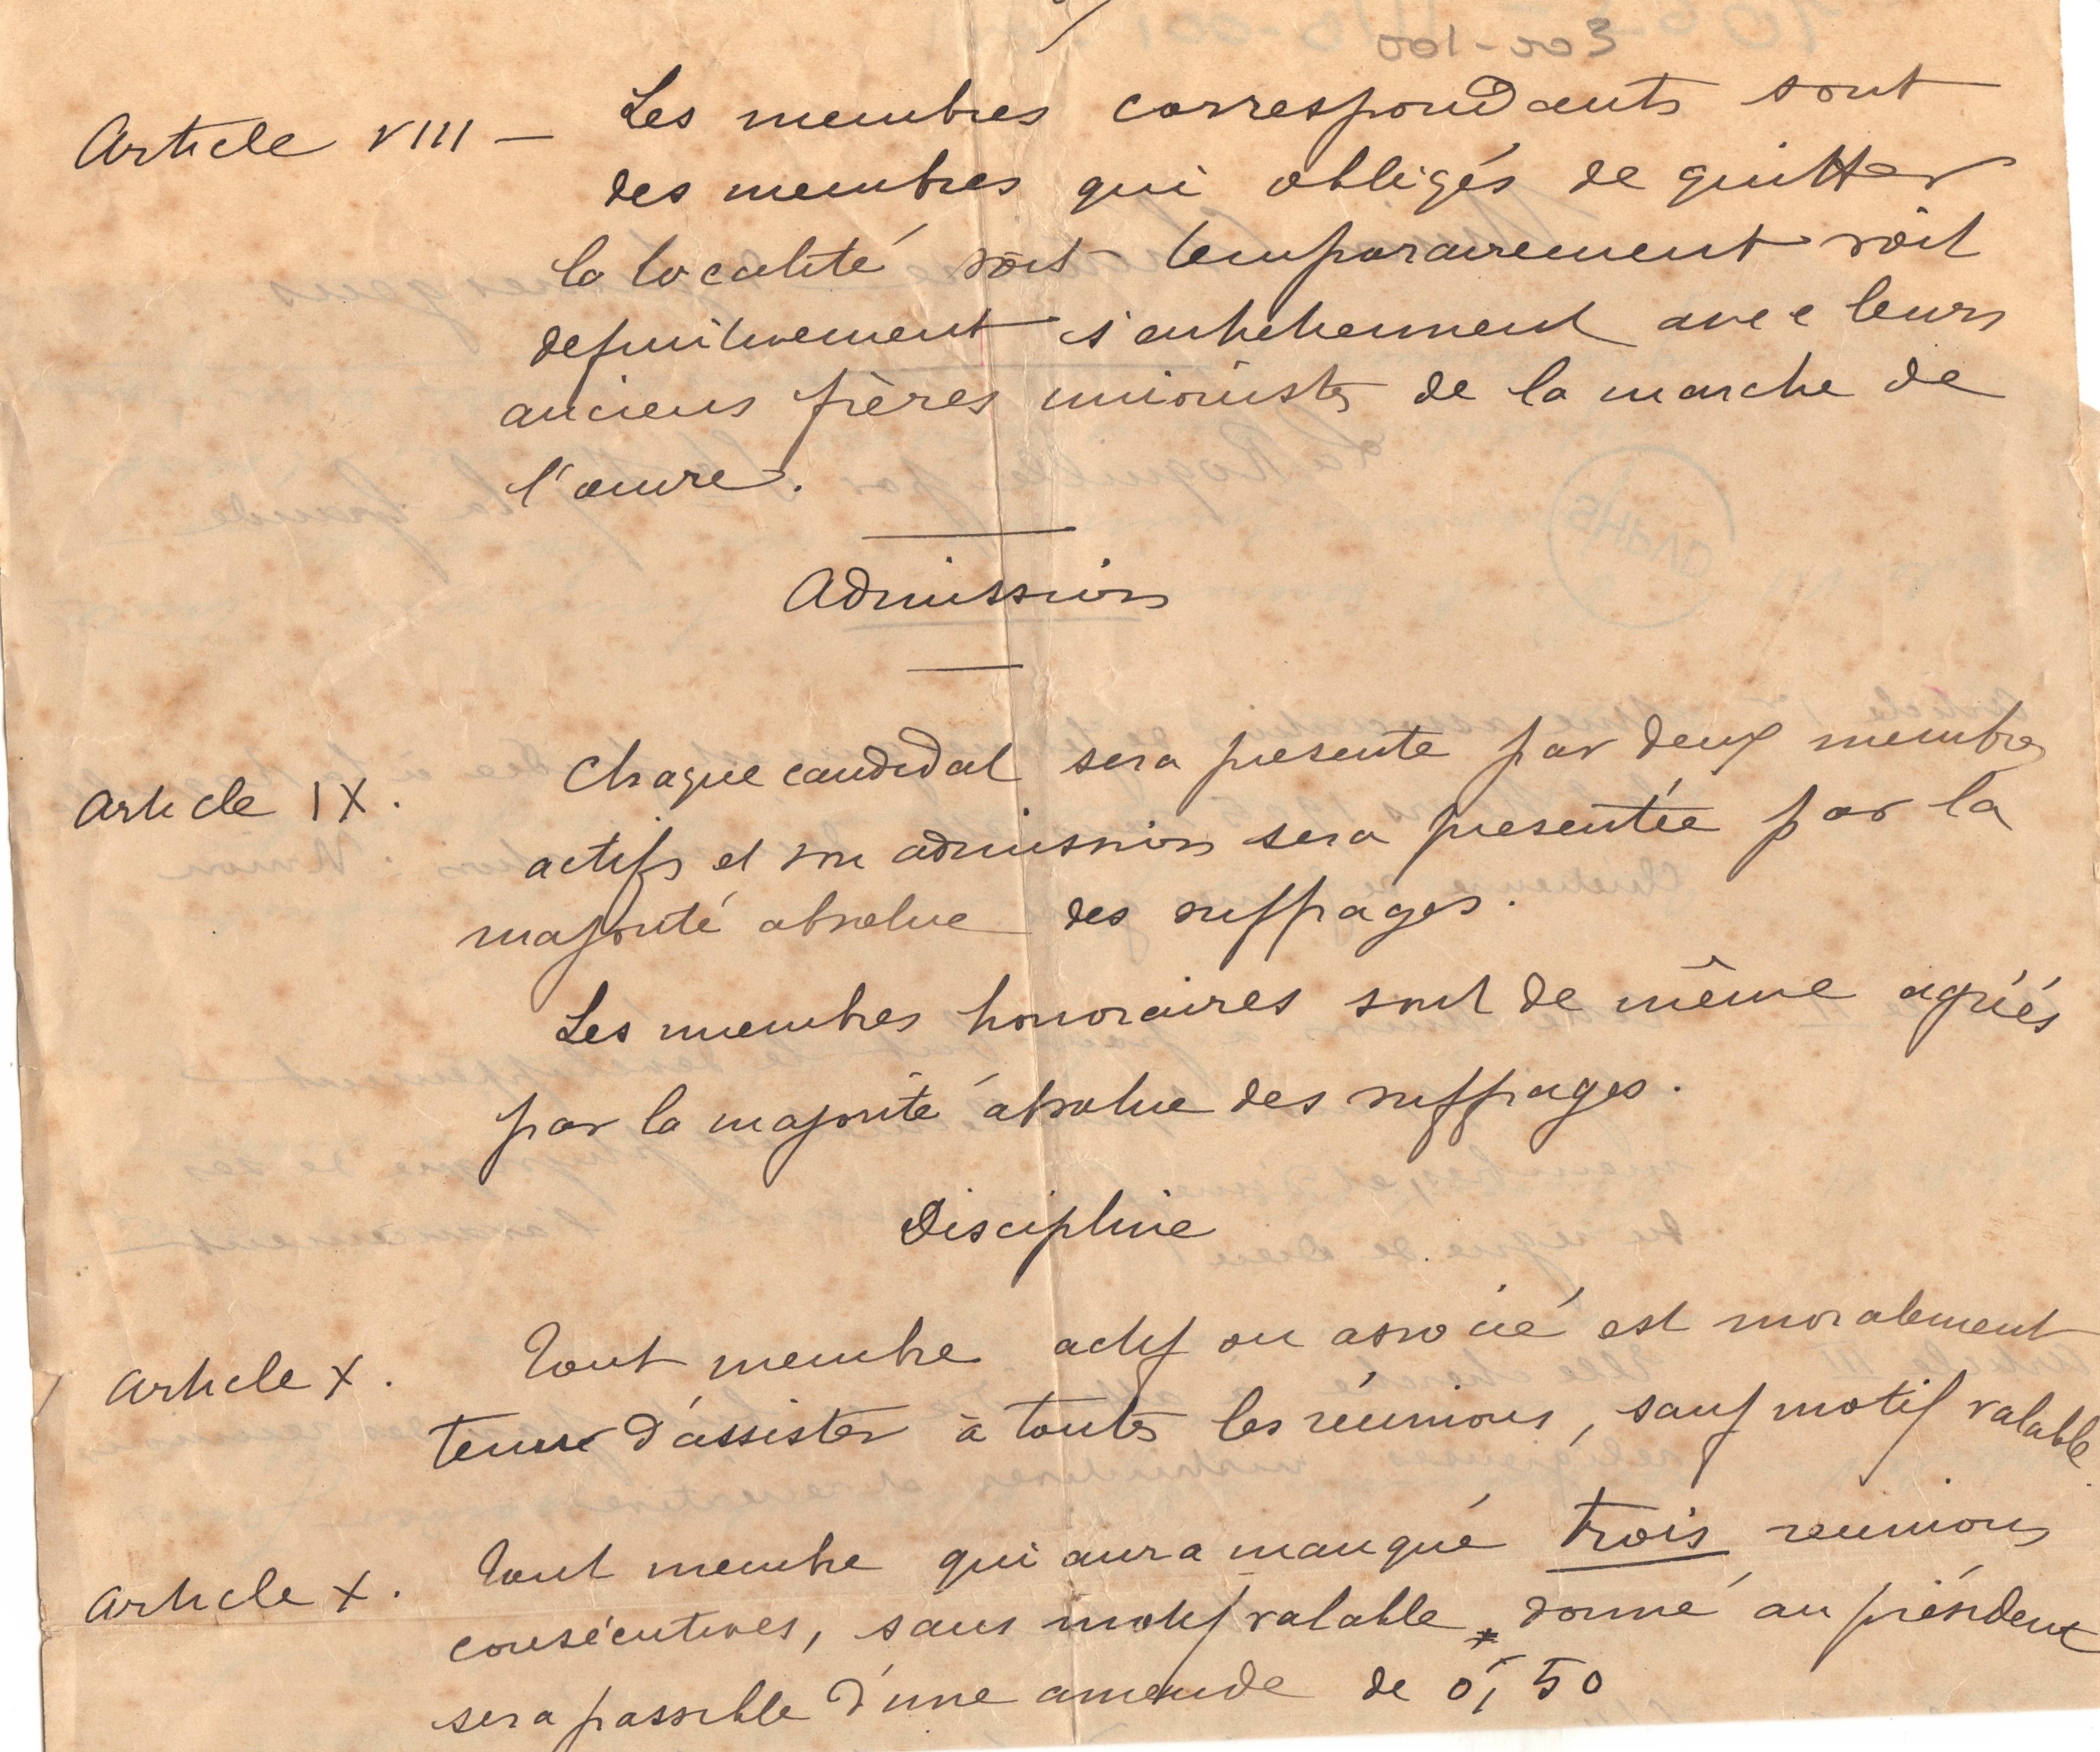 Article VIII — Les membres correspondants sont
des membres qui obligés de quitter
la localité soit temporairement soit
definitivement s'entretiennent avec leurs
anciens frères unionistes de la marche de
l'œuvre.
Admission
Article IX. Chaque candidat sera presente par deux membres
actifs et son admission sera presentée par la
majorité absolue des suffrages.
Les membres honoraires sont de même agréés
par la majorité absolue des suffrages.
Discipline
Article X. Tout membre actif ou associé est moralement
tenu d'assister à toutes les réunions, sauf motif valable
Article X. Tout membre qui aura manqué trois reunions
consécutives, sans motif valable donné au président
sera passible d'une amende de 0f,50